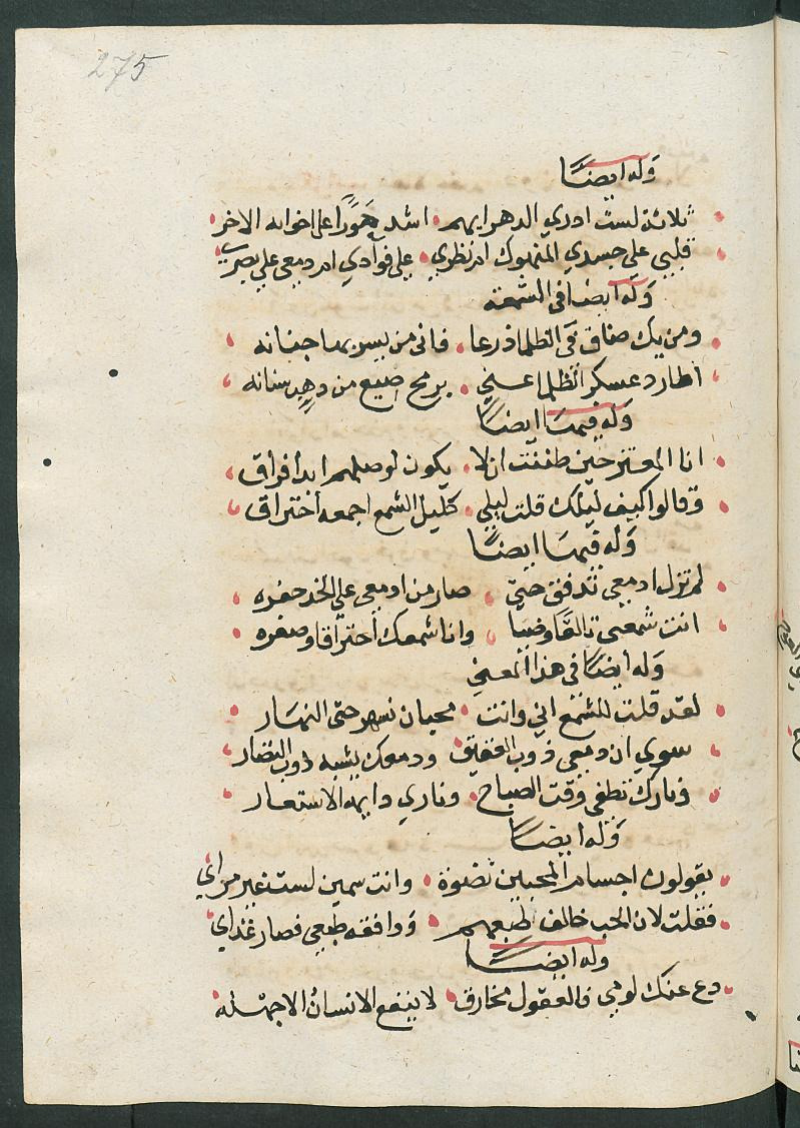 275
وله ايضًا
ثلاثة لست ادري الدهر ايهم اشد جورًا على اخوانه الاخر
قلبي على جسدي المنهوك ام نظري على فوآدي ام دمعي على بصري
وله ايضا في الشمعه
ومن يك ضاق في الظلما ذرعا فانى من يسر بها جنانه
اطارد عسكر الظلما عني برمح اصبع من دهن سنانه
وله فيها ايضًا
انا المعتز حين ظننت ان لا يكون لوصلهم ابدا فراق
وقالوا كيف ليلك قلت ليلي كليل الشمع اجمعه احتراق
وله فيها ايضًا
لم تزل ادمعي تدفق حتى صار من ادمعي على الخد حفره
انت شمعي تالقا وضيا وانا شمعك احتراقا وصفره
وله ايضًا في هذا المعنى
لقد قلت للشمع اني وانت محبان نسهر حتى النهار
سوي ان دمعي ذوب العقيق ودمعك يشبه ذوب النضار
ونارك تطفى وقت الصباح وناري دايمة الاستعار
وله ايضًا
يقولون اجسام المحبين نضوة وانت سمين لست غير مراي
فقلت لان الحب خالف طبعهم ووافقه طبعي فصار غذاي
وله ايضًا
دع عنك لومي فالعقول مخارق لا ينفع الانسان الا جهله